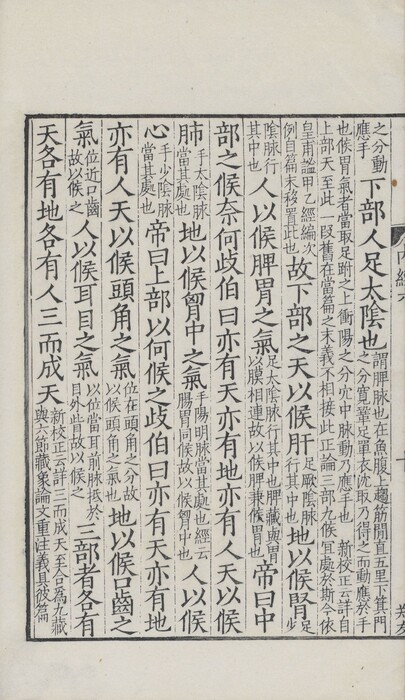 之分動應手下部人足太陰也謂脾脉也在魚腹上趨筋間直五里下箕門之分寛鞏足單衣沈取乃得之而動應於手
也候胃氣者當取足跗之上衝陽之分穴中脉動乃應手也 新校正云詳自上部天至此一段舊在當篇之末義不相接此正論三部九候冝處於斯今依
皇甫謐甲乙經編次例自篇末移置此也故下部之天以候肝足厥陰脉行其中也地以候腎足少
陰脉行其中也人以候脾胃之氣足太陰脉行其中也脾藏與胃以膜相連故以候脾兼候胃也帝曰中
部之候奈何歧伯曰亦有天亦有地亦有人天以候
肺手太陰脉當其處也地以候胷中之氣手陽明脉當其處也經云腸胃同候故以候胷中也人以候
心手少陰脉當其處也帝曰上部以何候之歧伯曰亦有天亦有地
亦有人天以候頭角之氣位在頭角之分故以候頭角之氣也地以候口齒之
氣位近口齒故以候之人以候耳目之氣以位當耳前脉抵於目外眥故以候之三部者各有
天各有地各有人三而成天新校正云詳三而成天至合為九藏與六節藏象論文重注義具彼篇
内經六